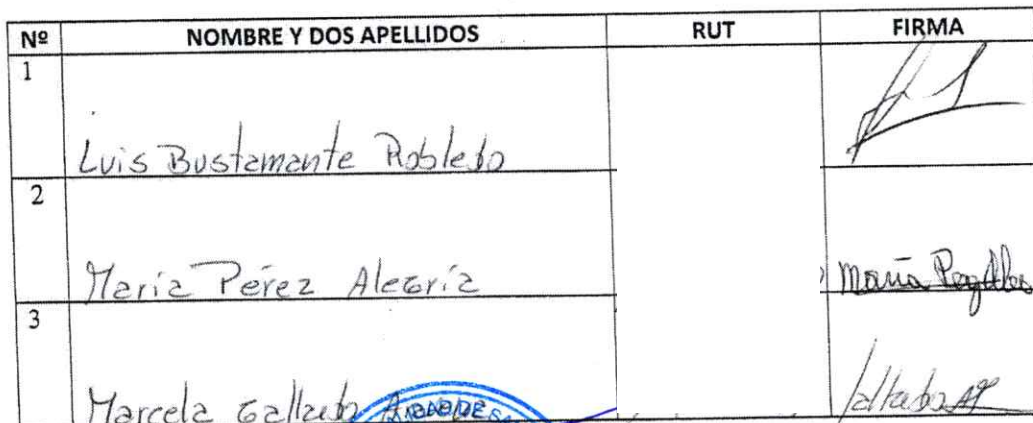 Nº NOMBRE Y DOS APELLIDOS RUT FIRMA
1
Luis Bustamante Robledo
2
María Pérez Alegría María
3
Marcela Gallardo